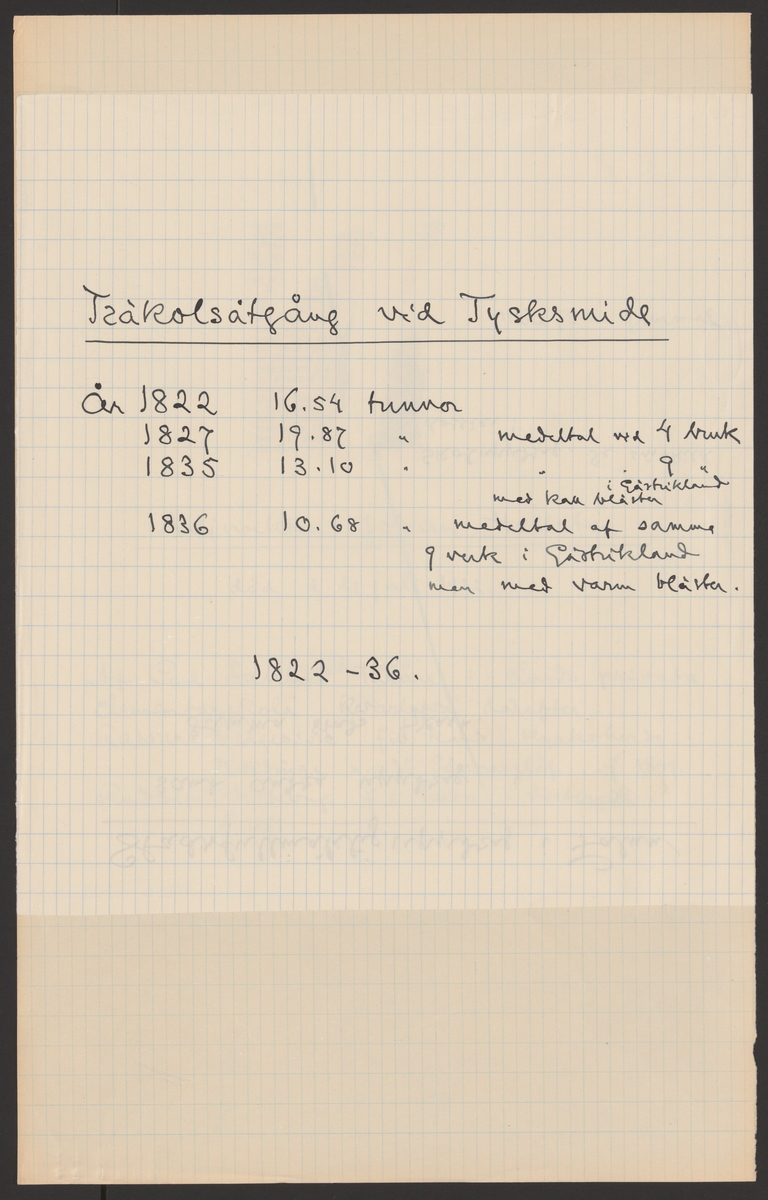 Träkolsåtgång vid Tysksmide
År 1822 16.54 tunnor
1827 19.87 " medeltal vid 4 bruk
1835 13.10 " " " 9 "
i Gästrikland
med kall bläster
1836 10.68 " medeltal af samma
9 verk i Gästrikland
men med varm bläster.
1822-36.